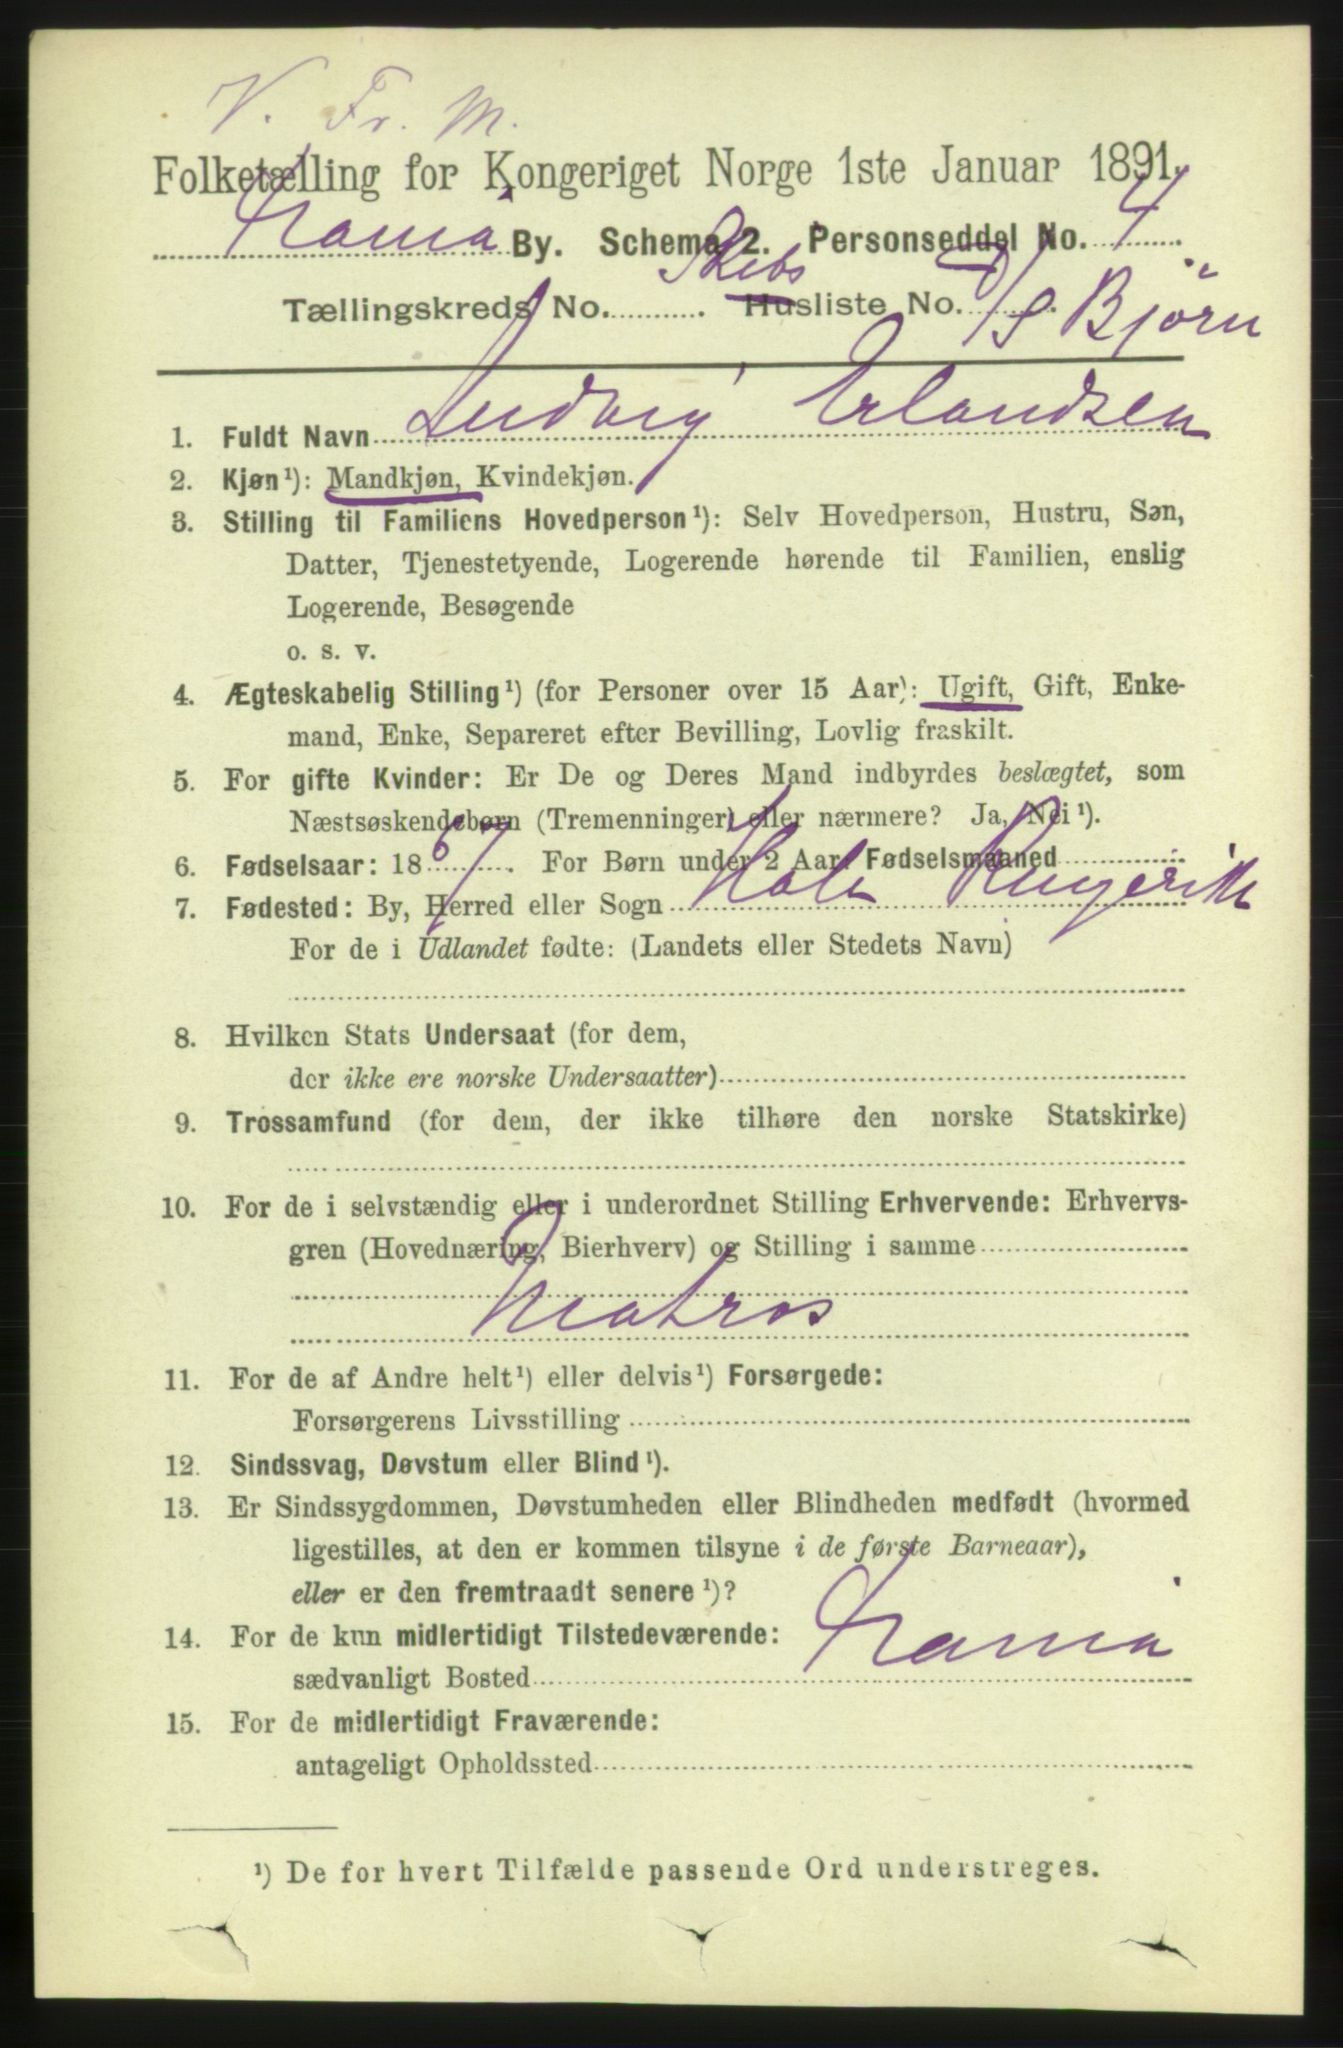 V. Fr. M.
Folketælling for Kongeriget Norge 1ste Januar 1891.
Xania By. Schema 2. Personseddel No. 4
Tællingskreds No. . Skibs Husliste No. D/S Bjørn
1. Fuldt Navn Ludvig Erlandsen
2. Kjøn¹): Mandkjøn, Kvindekjøn.
3. Stilling til Familiens Hovedperson¹): Selv Hovedperson, Hustru, Søn,
Datter, Tjenestetyende, Logerende hørende til Familien, enslig
Logerende, Besøgende
o. s. v.
4. Ægteskabelig Stilling¹) (for Personer over 15 Aar): Ugift, Gift, Enke-
mand, Enke, Separeret efter Bevilling, Lovlig fraskilt.
5. For gifte Kvinder: Er De og Deres Mand indbyrdes beslægtet, som
Næstsøskendebørn (Tremenninger) eller nærmere? Ja, Nei¹).
6. Fødselsaar: 1867. For Børn under 2 Aar: Fødselsmaaned
7. Fødested: By, Herred eller Sogn Hole Ringerike
For de i Udlandet fødte: (Landets eller Stedets Navn)
8. Hvilken Stats Undersaat (for dem,
der ikke ere norske Undersaatter)
9. Trossamfund (for dem, der ikke tilhøre den norske Statskirke)
10. For de i selvstændig eller i underordnet Stilling Erhvervende: Erhvervs-
gren (Hovednæring, Bierhverv) og Stilling i samme
Matros
11. For de af Andre helt¹) eller delvis¹) Forsørgede:
Forsørgerens Livsstilling
12. Sindssvag, Døvstum eller Blind¹).
13. Er Sindssygdommen, Døvstumheden eller Blindheden medfødt (hvormed
ligestilles, at den er kommen tilsyne i de første Barneaar),
eller er den fremtraadt senere¹)?
14. For de kun midlertidigt Tilstedeværende:
sædvanligt Bosted Xania
15. For de midlertidigt Fraværende:
antageligt Opholdssted
¹) De for hvert Tilfælde passende Ord understreges.